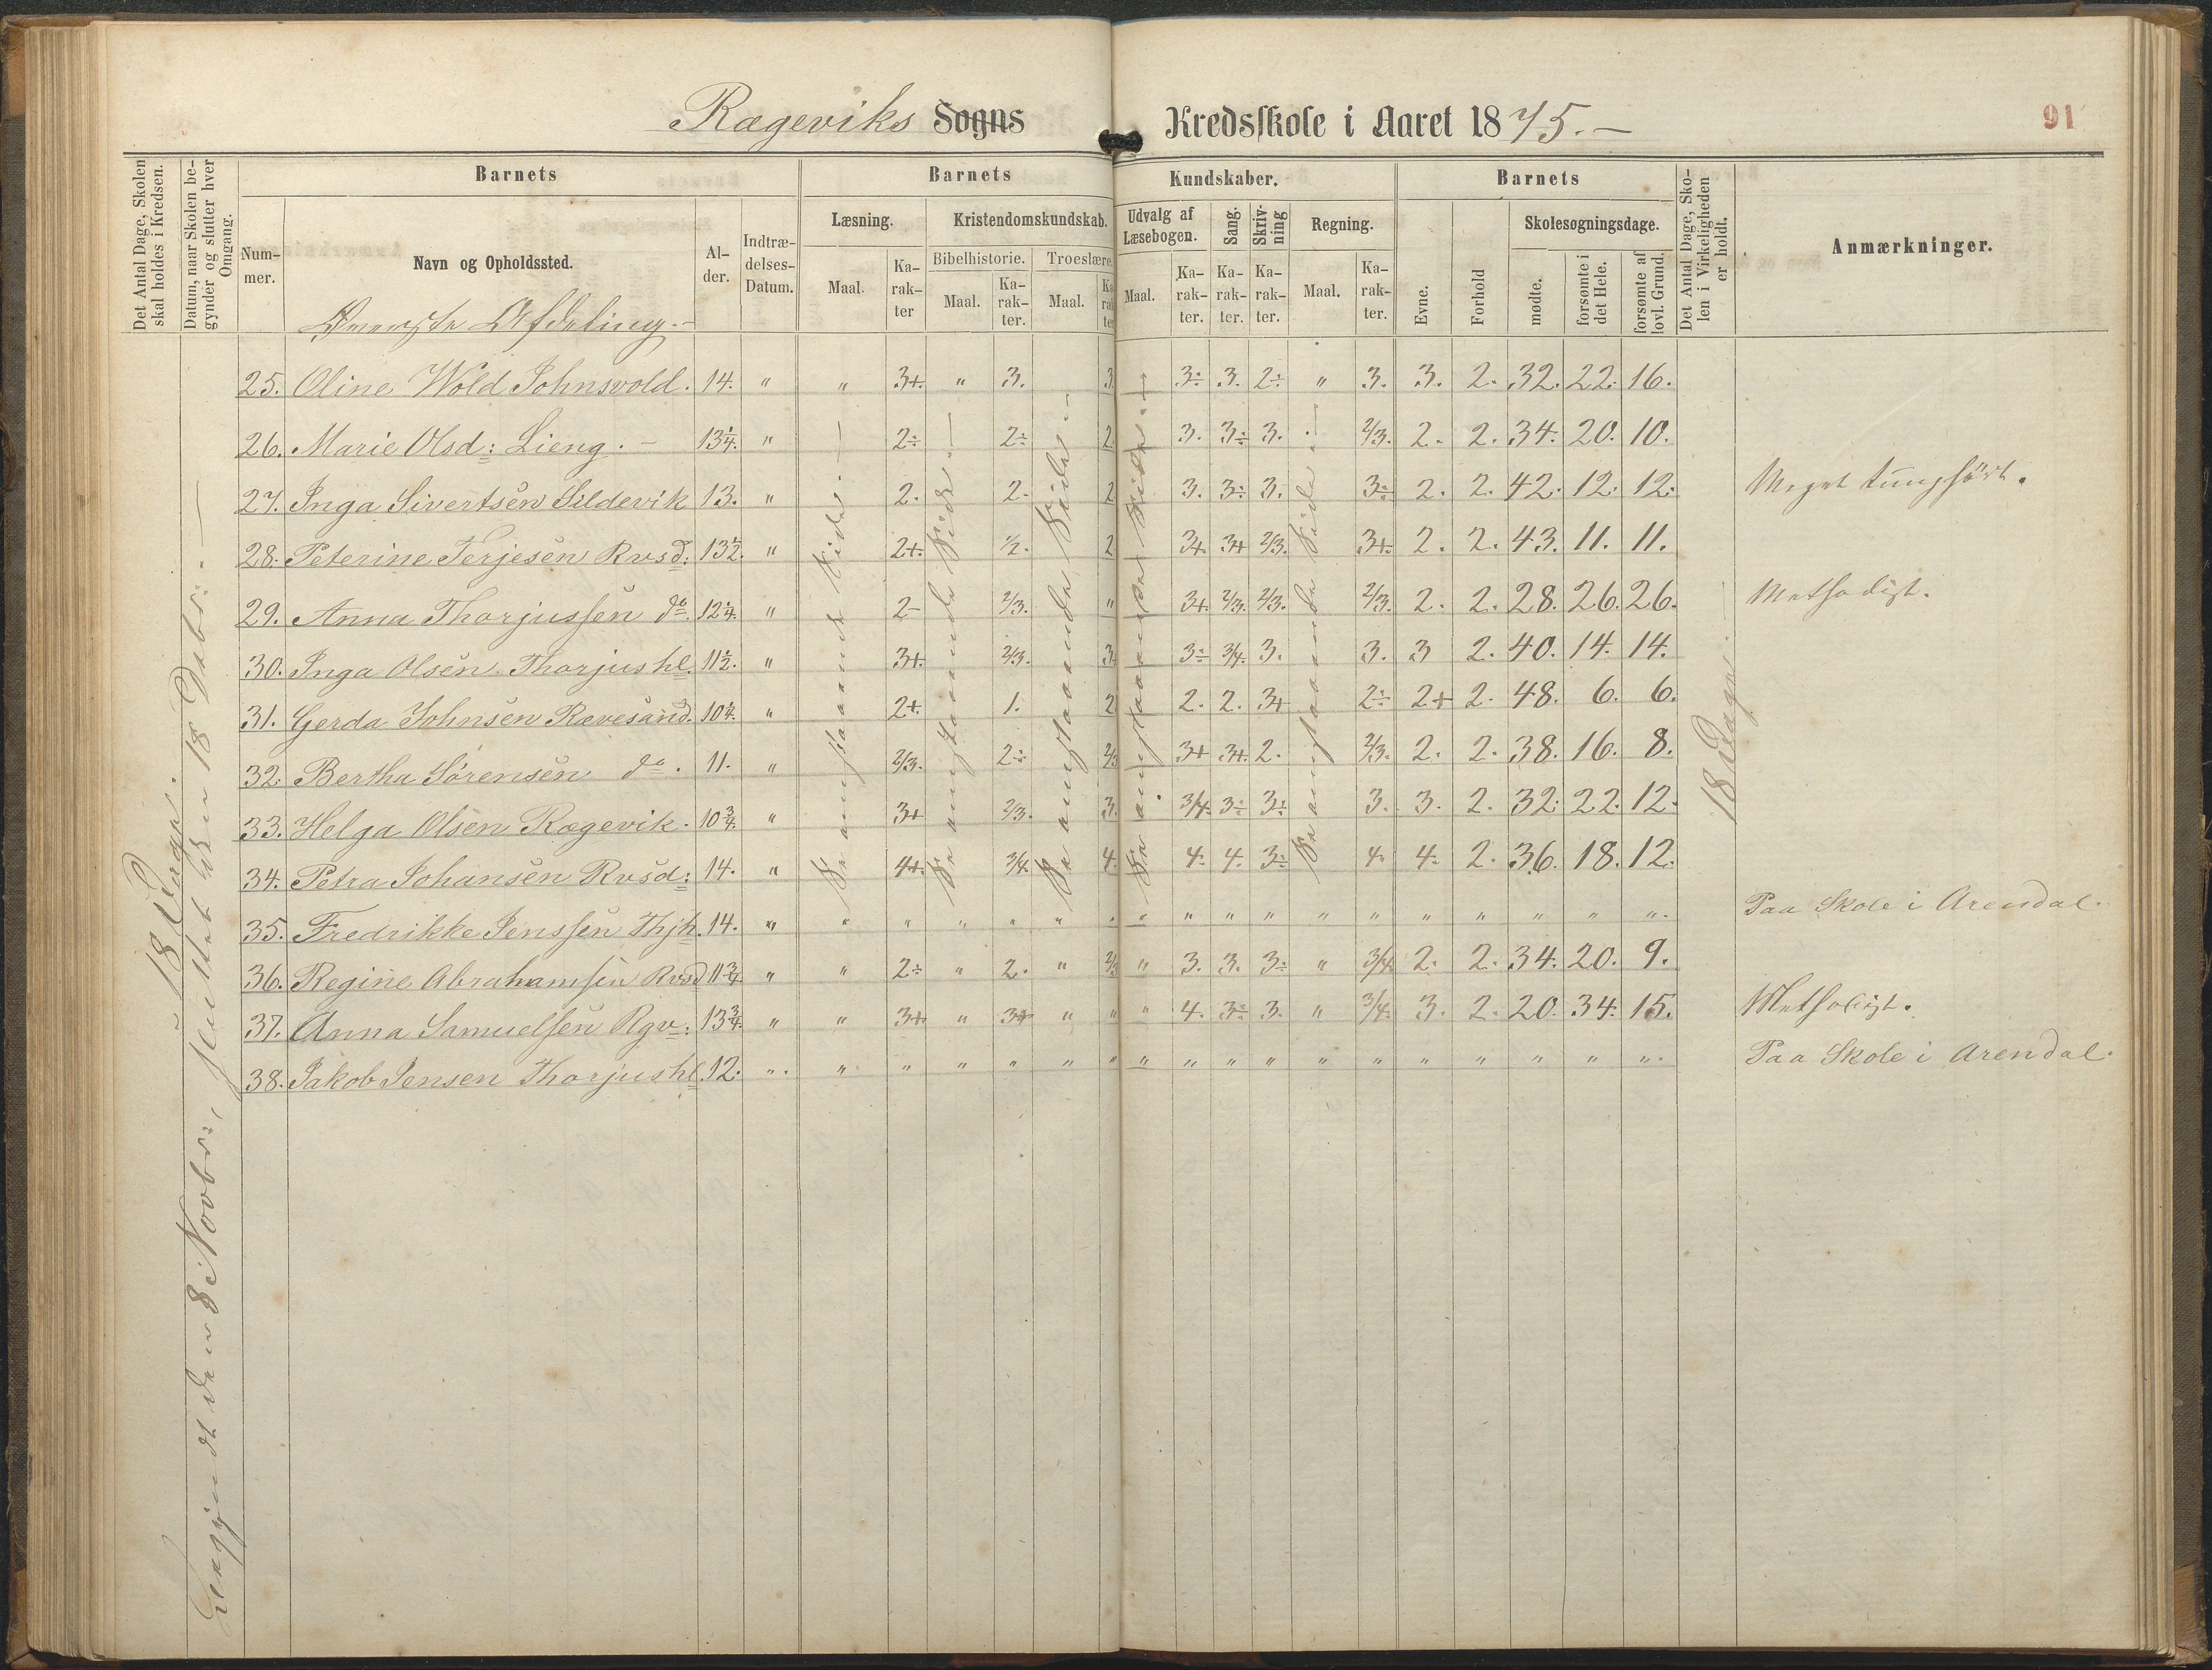 Rægeviks Sogns Kredsskole i Aaret 1875.—
91
Det Antal Dage, Skolen skal holdes i Kredsen.
Datum, naar Skolen begynder og slutter hver Omgang.
Barnets
Num-mer.
Navn og Opholdssted.
Al-der.
Indtræ-delses-Datum.
Barnets Kundskaber.
Læsning.
Maal.
Ka-rak-ter
Kristendomskundskab.
Bibelhistorie.
Maal.
Ka-rak-ter.
Troeslære.
Maal.
Udvalg af Læsebogen.
Maal.
Ka-rak-ter.
Sang.
Ka-rak-ter.
Skriv-ning
Ka-rak-ter.
Regning.
Maal.
Ka-rak-ter.
Barnets
Evne.
Forhold
Skolesøgningsdage.
mødte.
forsømte i det Hele.
forsømte af lovl. Grund.
Det Antal Dage, Skolen i Virkeligheden er holdt.
Anmærkninger.
Øverste Afdeling.—
25. Oline Wold Johnsvold. 14. " " 3+. " 3. 3. 3÷ 3. 2÷ " 3. 3. 2. 32. 22. 16.
26. Marie Olsd: Lieng.— 13¼. " 2÷ 2÷ 2. 3. 3÷ 3. 2/3. 2. 2. 34. 20. 10.
27. Inga Sivertsen Sildevik 13. " 2. 2. 2 3. 3÷ 3. 3÷ 2. 2. 42. 12. 12. Meget tunghört.
28. Peterine Terjesen Rvsd: 13½. " 2+. ½. 2 3+. 3+ 2/3. 3+. 2. 2. 43. 11. 11.
29. Anna Thorjussen do 12¼. " 2- 2/3. " 3+. 2/3. 2/3. 2/3. 2. 2. 28. 26. 26. Methodist.
30. Inga Olsen Thorjushl. 11½. " 3+. 2/3. 3. 3÷ 3/4. 3. 3. 3 2. 40. 14. 14.
31. Gerda Johnsen Rævesand. 10¼. " 2+. 1. 2 2. 2. 3+ 2÷ 2+ 2. 48. 6. 6.
32. Bertha Sørensen do. 11. " 2/3. 2÷ 2/3 3+ 3+. 2. 2/3. 2. 2. 38. 16. 8.
33. Helga Olsen Rægevik. 10¾. " 3+ 2/3. 3. 3/4. 3÷ 3+. 3. 3. 2. 32. 22. 12.
34. Petra Johansen Rvsd: 14. " 4+. 3/4. 4. 4. 4. 3÷ 4. 4. 2. 36. 18. 12.
35. Fredrikke Jenssen Thjh. 14. " " " " " " " " " " " " " " " " " " ". Paa Skole i Arendal.
36. Regine Abrahamsen Rvsd 11¾. " " 2÷ " 2. " 2/3 " 3. 3. 3÷ " 3/4. 2. 2. 34. 20. 9.
37. Anna Samuelsen Rgv: 13¾. " " 3+. " 3+ " " " 4. 3÷ 3. " 3/4. 3. 2. 20. 34. 15. Methodist.
38. Jakob Jensen Thorjushl. 12. " " " " " " " " " " " " " " " " " " ". Paa Skole i Arendal.
18 Dage.
Begyndt den 8 Novbr:, sluttet den 18 Debr:—
Se anstaaende Side.—
Se anstaaende Side.—
Se anstaaende Side.—
Se anstaaende Side.—
Se anstaaende Side.—
18 Dage.—